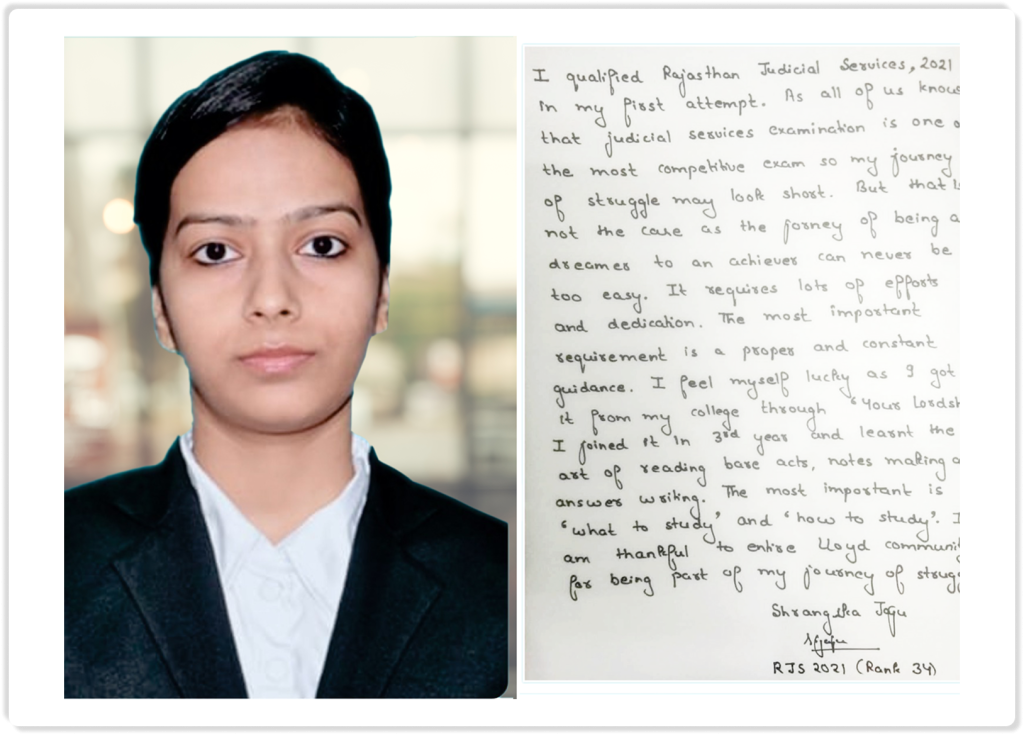 I qualified Rajasthan Judicial Services, 2021
in my first attempt. As all of us know
that judicial services examination is one o
the most competitive exam so my journey
of struggle may look short. But that is
not the case as the jorney of being a
dreamer to an achiever can never be
too easy. It requires lots of efforts
and dedication. The most important
requirement is a proper and constant
guidance. I feel myself lucky as I got
it from my college through "Your Lordsh
I joined it in 3rd year and learnt the
art of reading bare acts, notes making a
answer writing. The most important is
'what to study' and 'how to study'. I
am thankful to entire Lloyd communi
for being part of my journey of strugg
RJS 2021 (Rank 34)